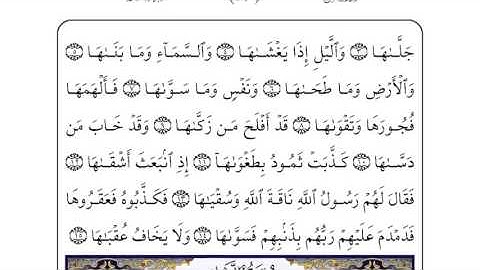 جَلَّىٰهَا ٣ وَٱلَّيۡلِ إِذَا يَغۡشَىٰهَا ٤ وَٱلسَّمَآءِ وَمَا بَنَىٰهَا ٥
وَٱلۡأَرۡضِ وَمَا طَحَىٰهَا ٦ وَنَفۡسٖ وَمَا سَوَّىٰهَا ٧ فَأَلۡهَمَهَا
فُجُورَهَا وَتَقۡوَىٰهَا ٨ قَدۡ أَفۡلَحَ مَن زَكَّىٰهَا ٩ وَقَدۡ خَابَ مَن
دَسَّىٰهَا ١٠ كَذَّبَتۡ ثَمُودُ بِطَغۡوَىٰهَآ ١١ إِذِ ٱنۢبَعَثَ أَشۡقَىٰهَا ١٢
فَقَالَ لَهُمۡ رَسُولُ ٱللَّهِ نَاقَةَ ٱللَّهِ وَسُقۡيَٰهَا ١٣ فَكَذَّبُوهُ فَعَقَرُوهَا
فَدَمۡدَمَ عَلَيۡهِمۡ رَبُّهُم بِذَنۢبِهِمۡ فَسَوَّىٰهَا ١٤ وَلَا يَخَافُ عُقۡبَٰهَا ١٥